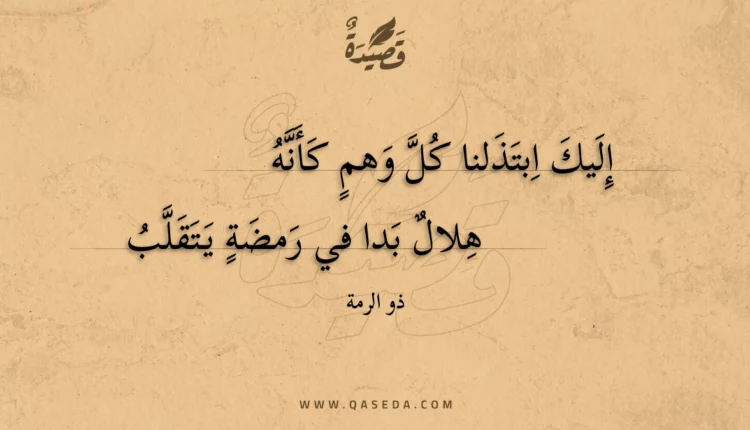 قَصِيْدَةٌ
إِلَيكَ اِبتَذَلنا كُلَّ وَهمٍ كَأَنَّهُ
هِلالٌ بَدا في رَمضَةٍ يَتَقَلَّبُ
ذو الرمة
WWW.QASEDA.COM